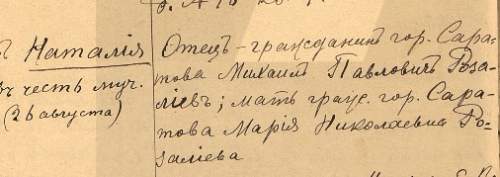 Наталія
въ честь муч.
(26 августа)
Отецъ - гражданинъ гор. Сара-
това Михаилъ Павловичъ Роза-
ліевъ; мать граж. гор. Сара-
това Марія Николаевна Ро-
заліева